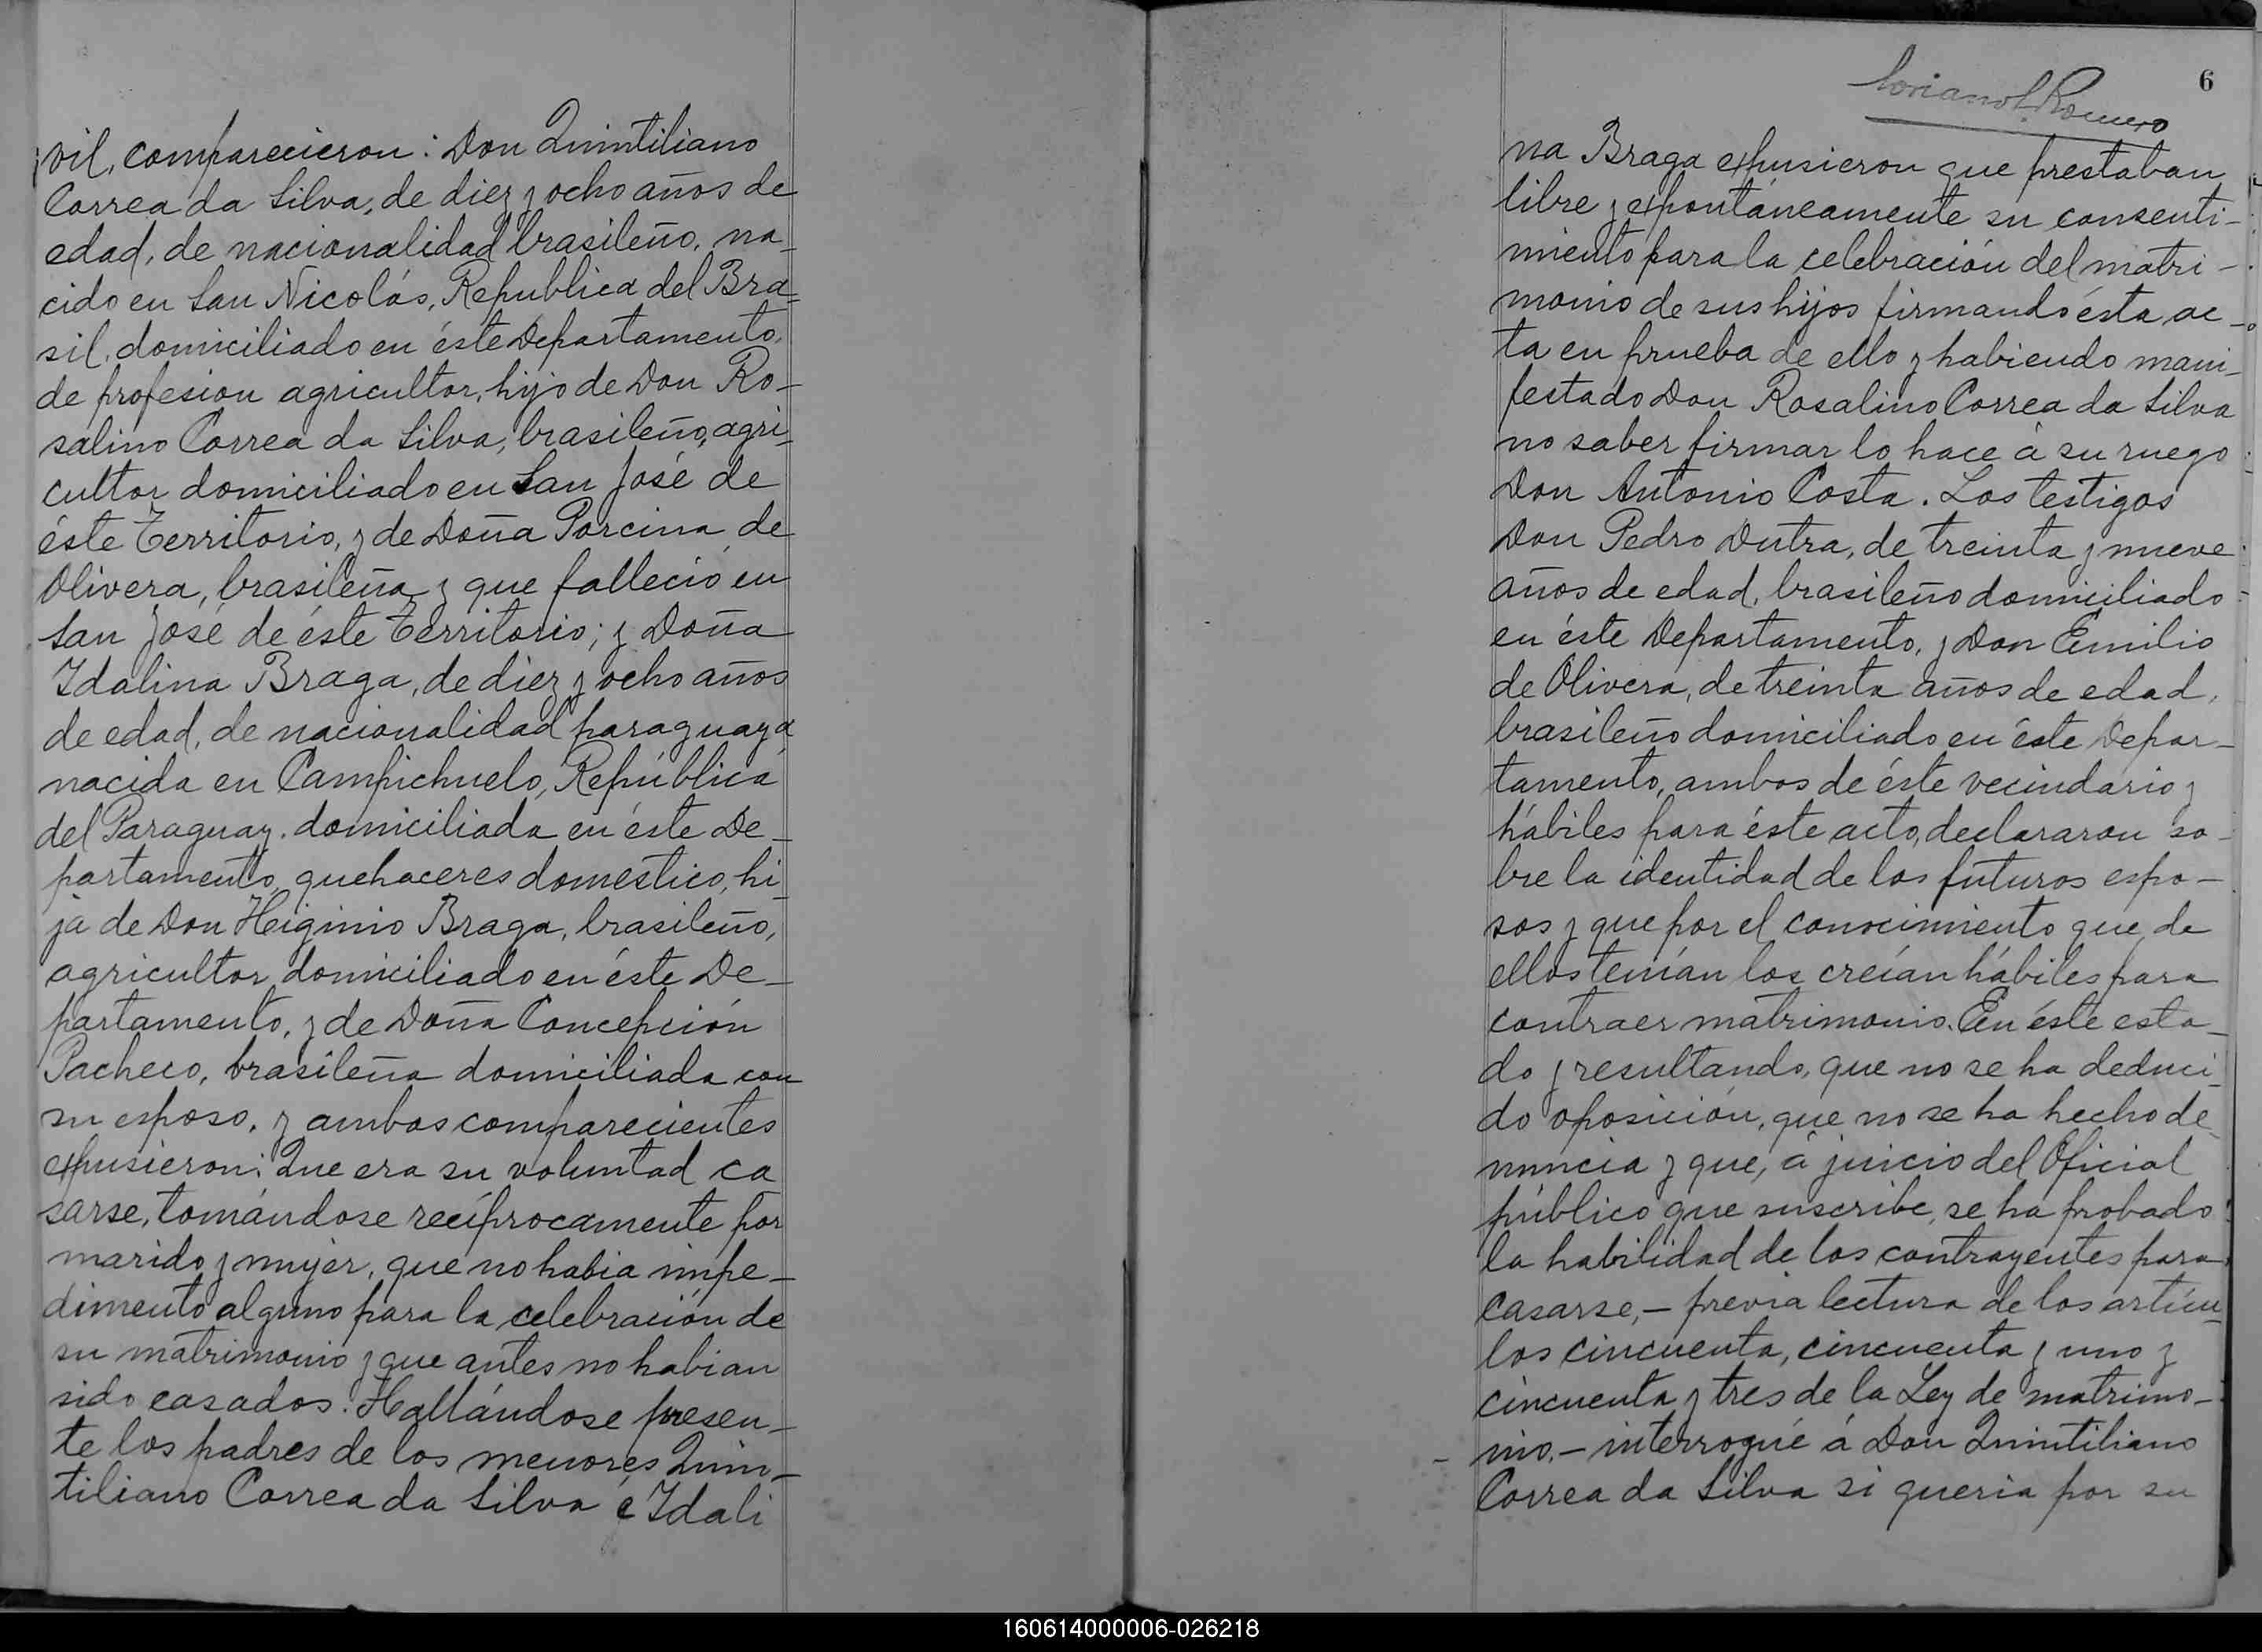 vil, comparecieron: Don Quintiliano
Correa da Silva, de diez y ocho años de
edad, de nacionalidad brasileño, na_
cido en San Nicolás, Republica del Bra=
sil, domiciliado en éste Departamento,
de profesion agricultor, hijo de Don Ro-
salino Correa da Silva, brasileño, agri_
cultor domiciliado en San José de
éste Territorio, y de Doña Porcina de
Olivera, brasileña y que falleció en
San José de éste Territorio; y Doña
Idalina Braga, de diez y ocho años
de edad, de nacionalidad paraguaya
nacida en Campichuelo, República
del Paraguay, domiciliada en éste De_
partamento, quehaceres doméstico, hi_
ja de Don Heiginio Braga, brasileño,
agricultor domiciliado en éste De_
partamento, y de Doña Concepción
Pacheco, brasileña domiciliada con
su esposo, y ambos comparecientes
expusieron: Que era su voluntad ca
sarse, tomándose recíprocamente por
marido y mujer, que no habia impe_
dimento alguno para la celebración de
su matrimonio y que antes no habian
sido casados. Hallándose presen_
te los padres de los menores Quin_
tiliano Correa da Silva é Idali
6
Romero
na Braga expusieron que prestaban
libre y expontáneamente su consenti-
miento para la celebración del matri-
monio de sus hijos firmando ésta ac_
ta en prueba de ello y habiendo mani_
festado Don Rosalino Correa da Silva
no saber firmar lo hace à su ruego
Don Antonio Costa. Los testigos
Don Pedro Dutra, de treinta y nueve
años de edad, brasileño domiciliado
en éste Departamento, y Don Emilio
de Olivera, de treinta años de edad,
brasileño domiciliado en éste Depar_
tamento, ambos de éste vecindario y
hábiles para éste acto, declararon so-
bre la identidad de los futuros espo-
sos y que por el conocimiento que de
ellos tenían los creían hábiles para
contraer matrimonio. En éste esta_
do y resultando, que no se ha deduci_
do oposición, que no se ha hecho de_
nuncia y que, á juicio del Oficial
público que suscribe, se ha probado
la habilidad de los contrayentes para
casarse,- previa lectura de los artícu_
los cincuenta, cincuenta y uno y
cincuenta y tres de la Ley de matrimo-
nio.- interrogué á Don Quintiliano
Correa da Silva si queria por su
160614000006-026218